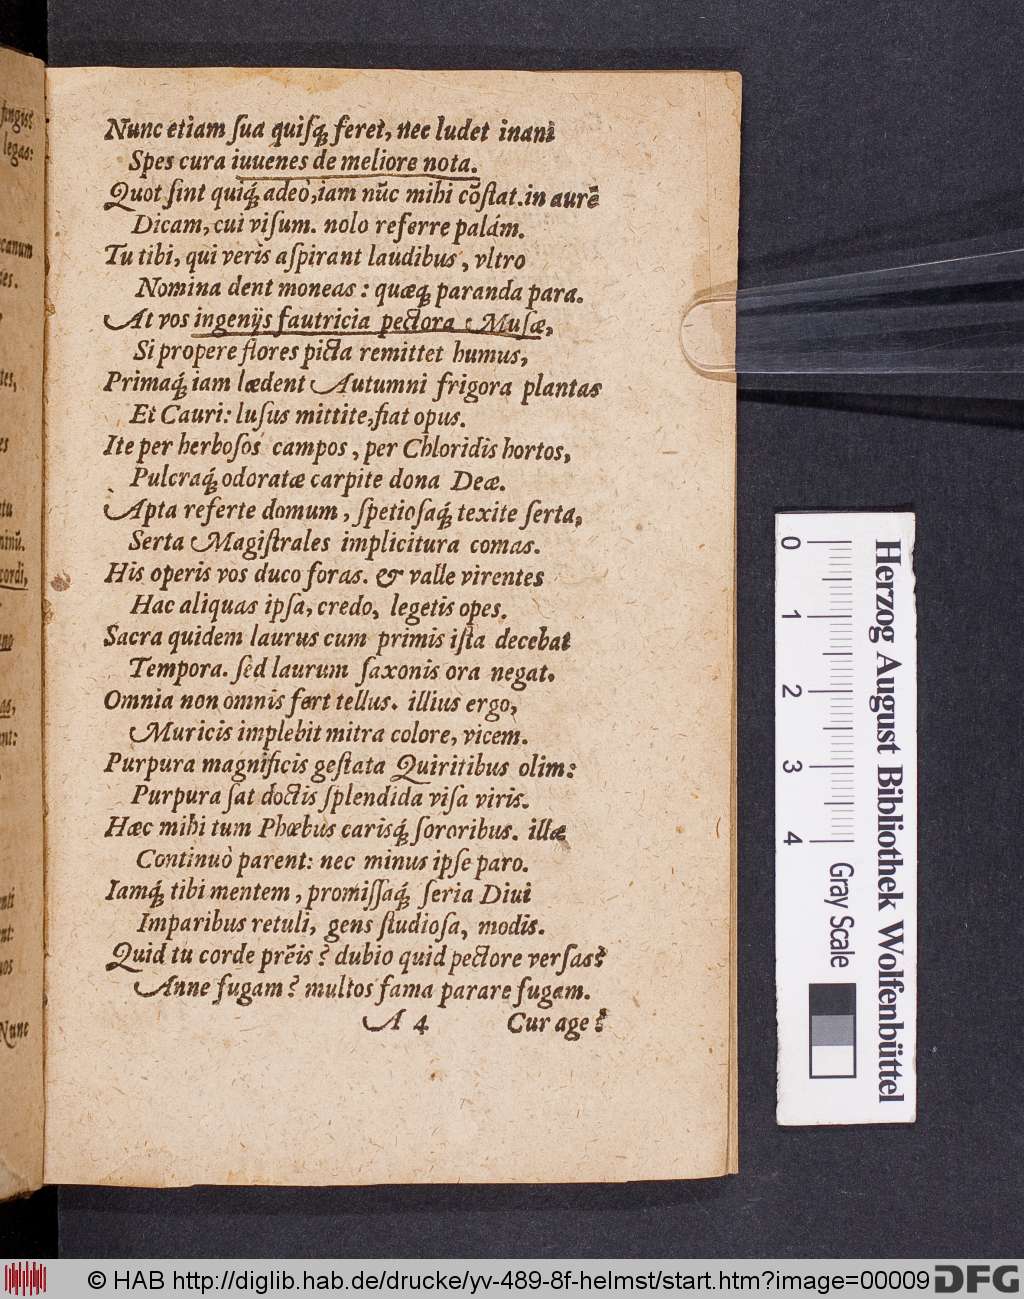 Nunc etiam ſua quiſq́ꝫ feret, nec ludet inani
Spes cura iuuenes de meliore nota.
Quot ſint quiq́ꝫ adeò, iam nũc mihi cõſtat. in aurẽ
Dicam, cui viſum. nolo referre palám.
Tu tibi, qui veris aſpirant laudibus, vltro
Nomina dent moneas: quæq́ꝫ paranda para.
At vos ingenijs fautricia pectora Muſæ,
Si propere flores picta remittet humus,
Primaq́ꝫ iam lædent Autumni frigora plantas
Et Cauri: luſus mittite, fiat opus.
Ite per herboſos campos, per Chloridis hortos,
Pulcraq́ꝫ odoratæ carpite dona Deæ.
Apta referte domum, ſpetioſaq́ꝫ texite ſerta,
Serta Magiſtrales implicitura comas.
His operis vos duco foras. & valle virentes
Hac aliquas ipſa, credo, legetis opes.
Sacra quidem laurus cum primis iſta decebat
Tempora. ſed laurum ſaxonis ora negat.
Omnia non omnis fert tellus. illius ergo,
Muricis implebit mitra colore, vicem.
Purpura magnificis geſtata Quiritibus olim:
Purpura ſat doctis ſplendida viſa viris.
Hæc mihi tum Phœbus carisq́ꝫ ſororibus. illæ
Continuò parent: nec minus ipſe paro.
Iamq́ꝫ tibi mentem, promiſſaq́ꝫ ſeria Diui
Imparibus retuli, gens ſtudioſa, modis.
Quid tu corde prẽis? dubio quid pectore verſas?
Anne fugam? multos fama parare fugam.
A 4 Cur age?
fingis?
legas:
canum
tes,
minũ.
cordi,
Nunc
0 1 2 3 4
Gray Scale
Herzog August Bibliothek Wolfenbüttel
© HAB http://diglib.hab.de/drucke/yv-489-8f-helmst/start.htm?image=00009
DFG